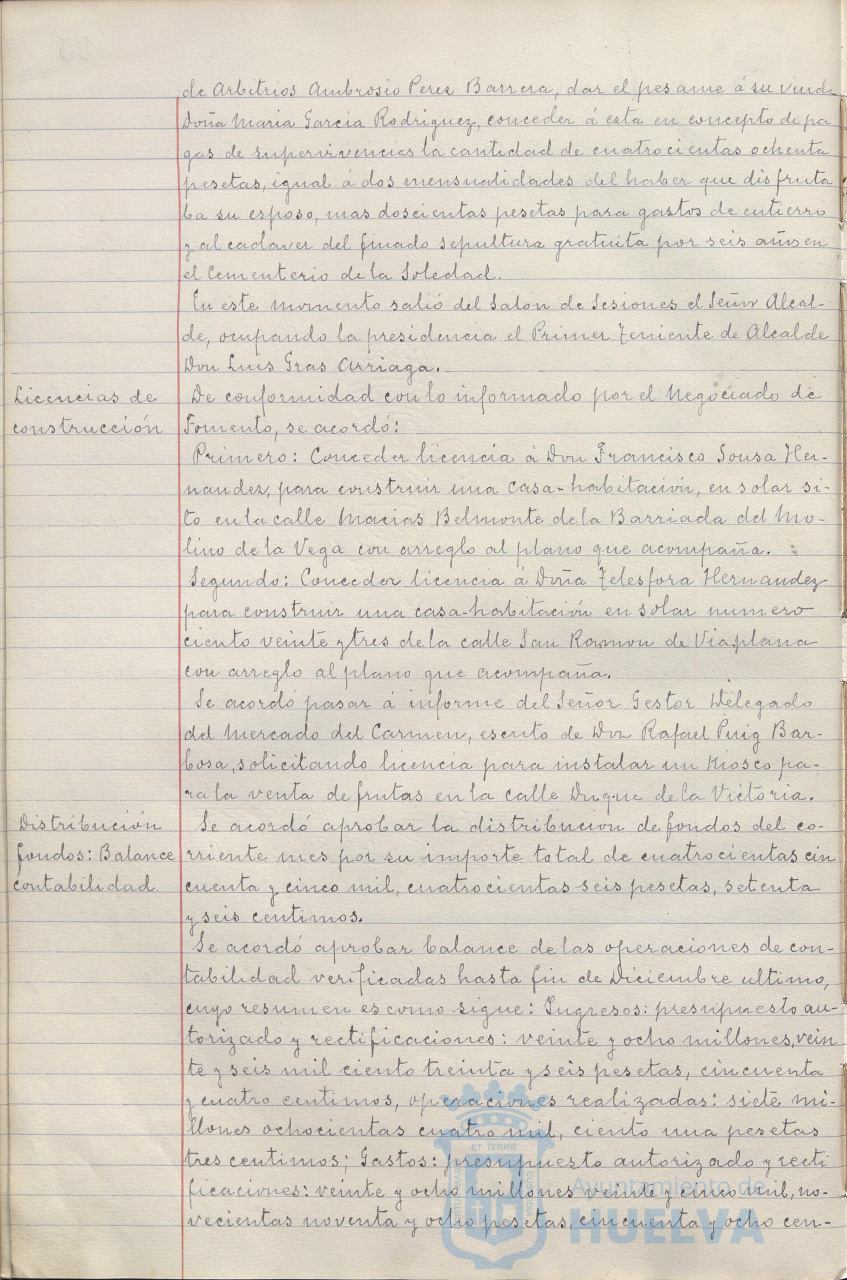 de Arbitrios Ambrosio Perez Barrera, dar el pesame á su viuda
Doña Maria Garcia Rodriguez, conceder á esta en concepto de pa
gas de supervivencias la cantidad de cuatrocientas ochenta
pesetas, igual á dos mensualidades del haber que disfruta
ba su esposo, mas doscientas pesetas para gastos de entierro
y al cadaver del finado sepultura gratuita por seis años en
el Cementerio de la Soledad.
En este momento salió del Salón de Sesiones el Señor Alcal-
de, ocupando la presidencia el Primer Teniente de Alcalde
Don Luis Gras Arriaga.
Licencias de
construcción
De conformidad con lo informado por el Negociado de
Fomento, se acordó:
Primero: Conceder licencia á Don Francisco Sousa Her-
nandez, para construir una casa-habitación, en solar si-
to en la calle Macias Belmonte de la Barriada del Mo-
lino de la Vega con arreglo al plano que acompaña.
Segundo: Conceder licencia á Doña Telesfora Hernandez
para construir una casa-habitación en solar numero
ciento veinte y tres de la calle San Ramon de Viaplana
con arreglo al plano que acompaña.
Se acordó pasar á informe del Señor Gestor Delegado
del Mercado del Carmen, escrito de Don Rafael Puig Bar-
bosa, solicitando licencia para instalar un Kiosco pa-
ra la venta de frutas en la calle Duque de la Victoria.
Distribución
fondos: Balance
contabilidad.
Se acordó aprobar la distribucion de fondos del co-
rriente mes por su importe total de cuatrocientas cin
cuenta y cinco mil, cuatrocientas seis pesetas, setenta
y seis centimos.
Se acordó aprobar balance de las operaciones de con-
tabilidad verificadas hasta fin de Diciembre ultimo,
cuyo resumen es como sigue: Ingresos: presupuesto au-
torizado y rectificaciones: veinte y ocho millones, vein
te y seis mil ciento treinta y seis pesetas, cincuenta
y cuatro centimos, operaciones realizadas: siete mi-
llones ochocientas cuatro mil, ciento una pesetas
tres centimos; Gastos: presupuesto autorizado y recti
ficaciones: veinte y ocho millones veinte y cinco mil, no-
vecientas noventa y ocho pesetas, cincuenta y ocho cen-
ET TERRÆ
Ayuntamiento de
HUELVA